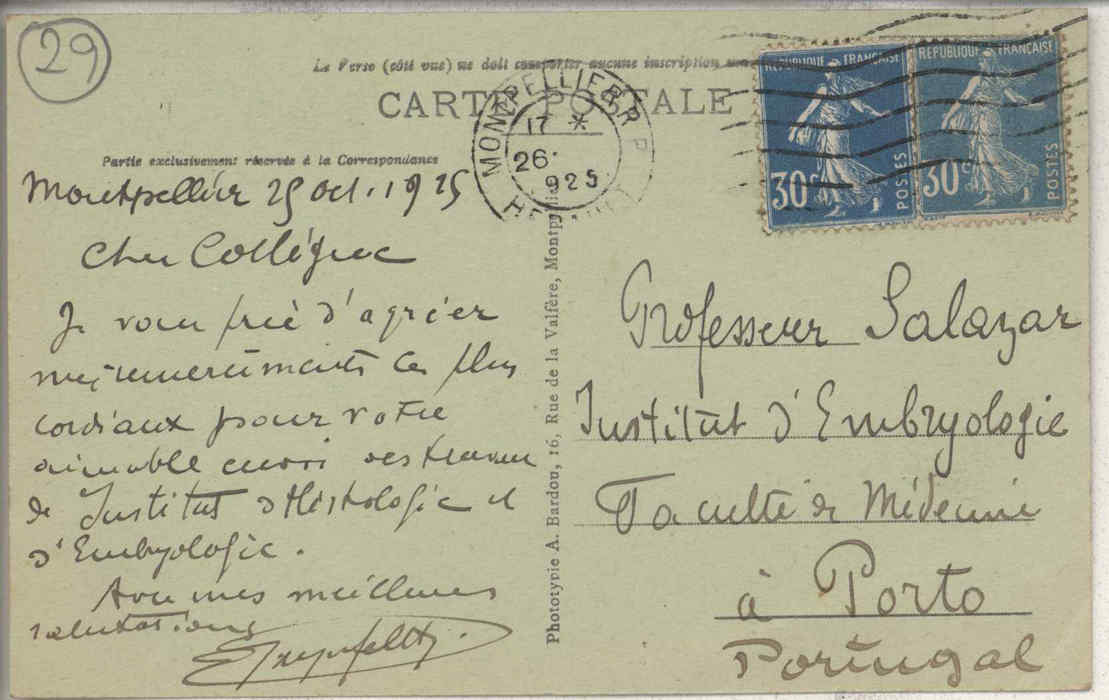 29
Le Verso (côté vue) ne doit comporter aucune inscription
CARTE POSTALE
MONTPELLIER R.P.
17 *
26
925
HERAULT
REPUBLIQUE FRANÇAISE
30c
POSTES
REPUBLIQUE FRANÇAISE
30c
POSTES
Partie exclusivement réservée à la Correspondance
Montpellier 25 Oct. 1925
Cher Collègue
Je vous prie d'agréer
mes remerciments les plus
cordiaux pour votre
aimable envoi des travaux
de Institut d'Histologie et
d'Embryologie.
Avec mes meilleures
salutations
Phototypie A. Bardou, 16, Rue de la Valfère, Montpellier
Professeur Salazar
Institut d'Embryologie
Faculté de Médecine
à Porto
Portugal